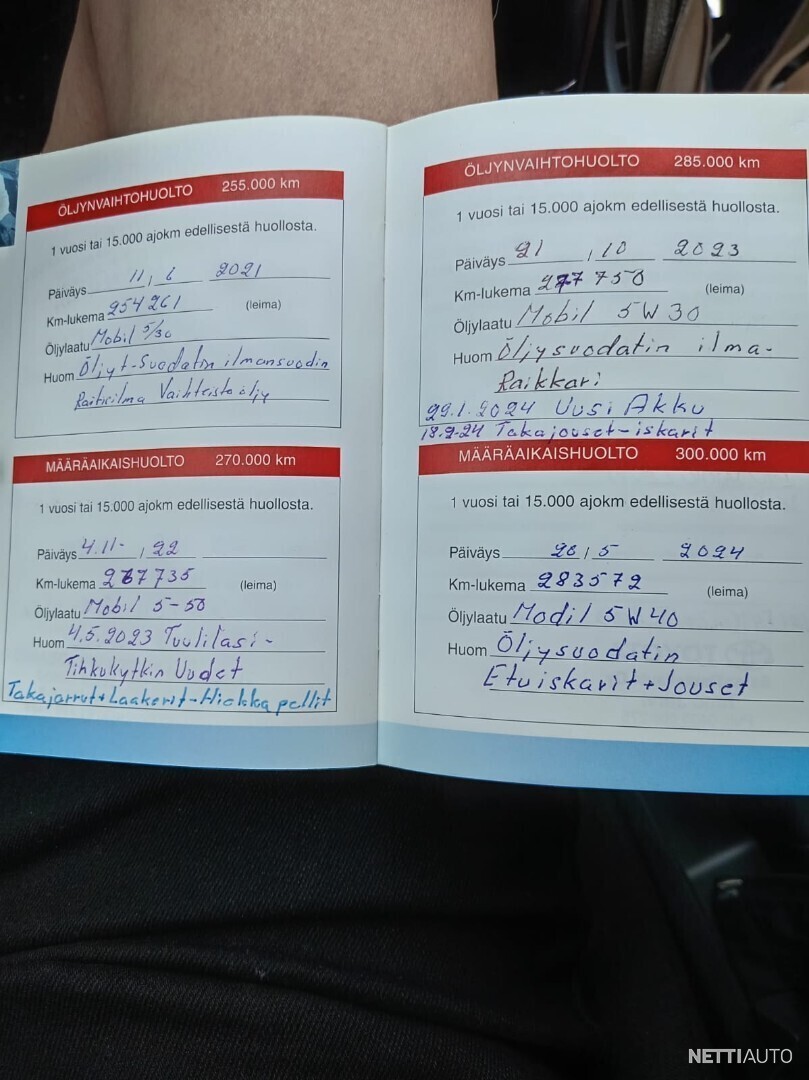 ÖLJYNVAIHTOHUOLTO 255.000 km
1 vuosi tai 15.000 ajokm edellisestä huollosta.
Päiväys 11, 6 2021
Km-lukema 254261 (leima)
Öljylaatu Mobil 5/30
Huom Öljyt-Suodatin ilmansuodin
Raitisilma Vaihteistoöljy
MÄÄRÄAIKAISHUOLTO 270.000 km
1 vuosi tai 15.000 ajokm edellisestä huollosta.
Päiväys 4.11- / 22
Km-lukema 267735 (leima)
Öljylaatu Mobil 5-50
Huom 4.5.2023 Tuulilasi-
Tihkukytkin Uudet
Takajarrut+Laakerit-Hiekka pellit
ÖLJYNVAIHTOHUOLTO 285.000 km
1 vuosi tai 15.000 ajokm edellisestä huollosta.
Päiväys 21 / 10 2023
Km-lukema 277750 (leima)
Öljylaatu Mobil 5W30
Huom Öljysuodatin ilma-
Raikkari
29.1.2024 Uusi Akku
18.9-24 Takajouset-iskarit
MÄÄRÄAIKAISHUOLTO 300.000 km
1 vuosi tai 15.000 ajokm edellisestä huollosta.
Päiväys 26 / 5 2024
Km-lukema 283572 (leima)
Öljylaatu Modil 5W40
Huom Öljysuodatin
Etuiskarit+Jouset
NETTIAUTO